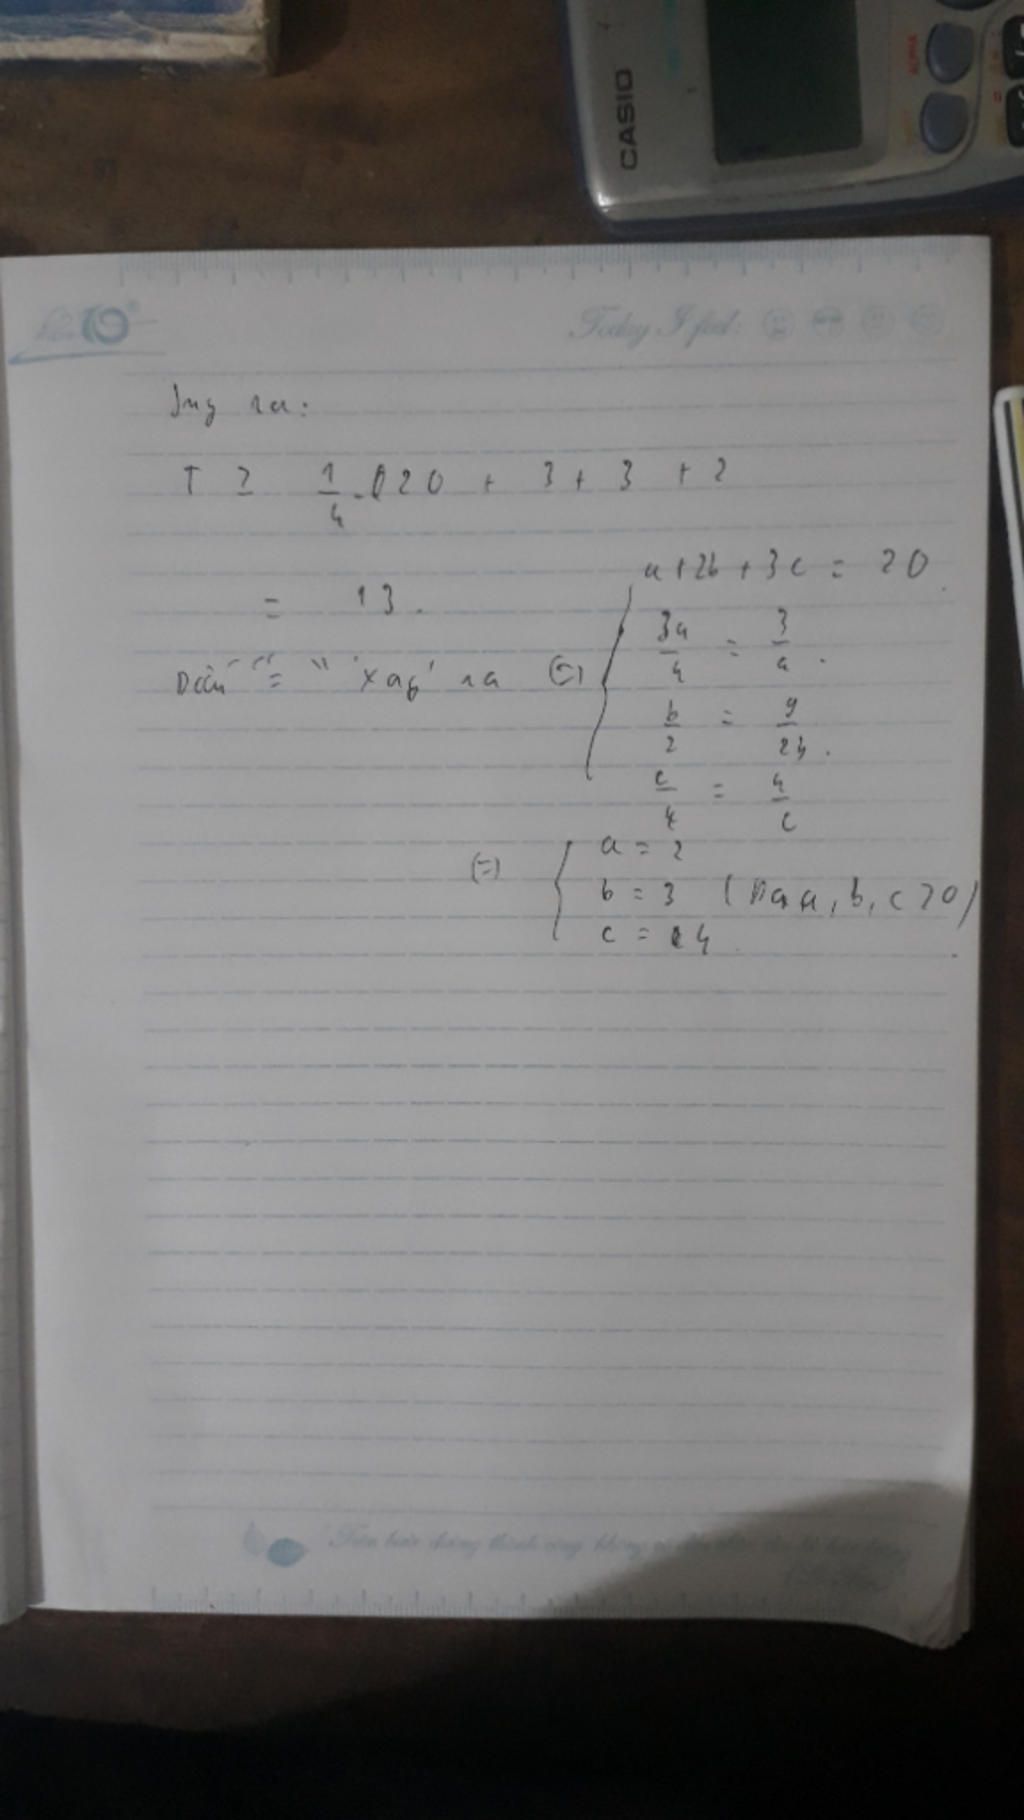 CASIO
ALPHA
Today I feel:
Suy ra:
T ≥ 1/4 . 20 + 3 + 3 + 2
= 13.
Dấu "=" xảy ra (=)
a + 2b + 3c = 20
3a/4 = 3/a.
b/2 = 9/2b.
c/4 = 4/c
(=)
a = 2
b = 3 (Do a, b, c > 0)
c = 4